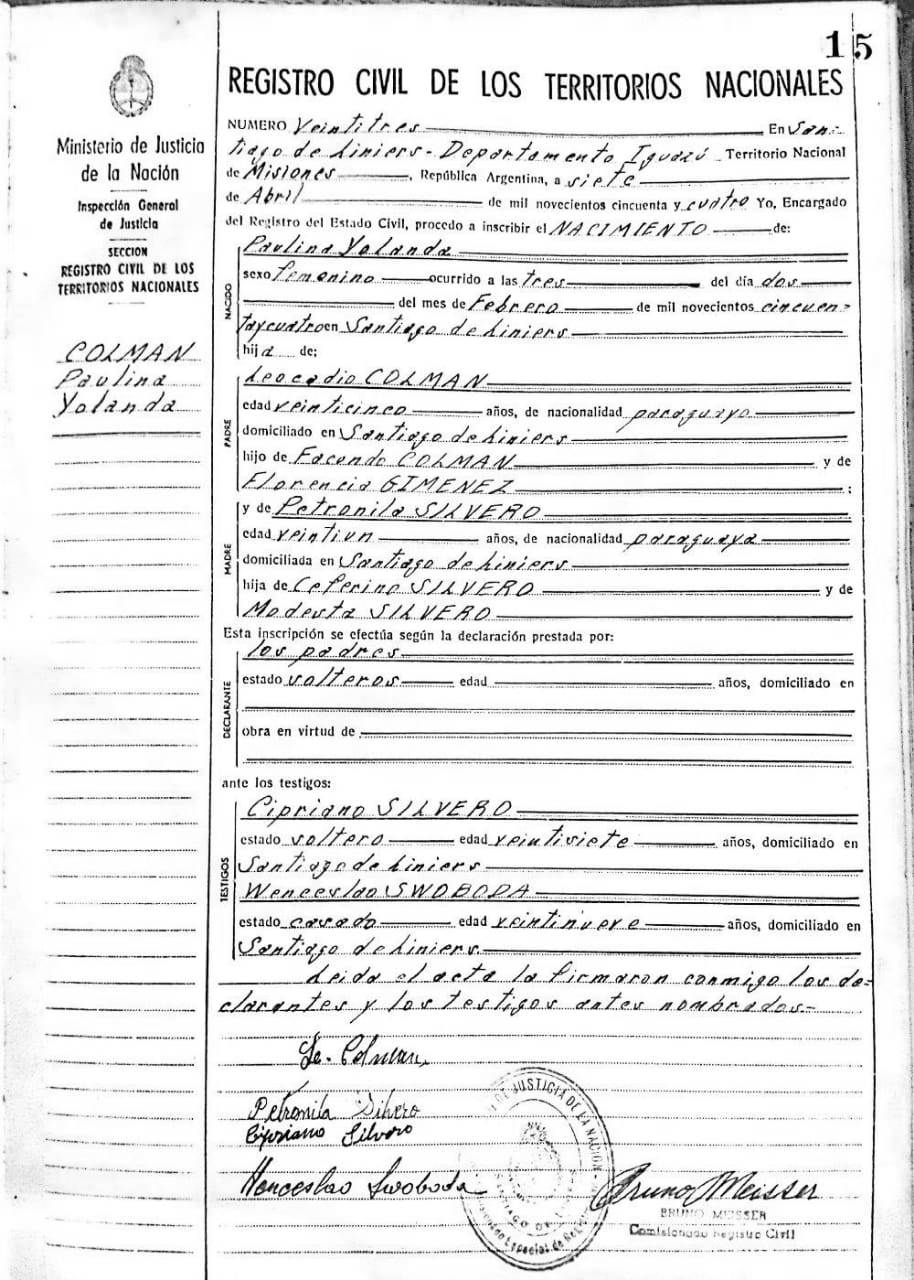 15
REGISTRO CIVIL DE LOS TERRITORIOS NACIONALES
Ministerio de Justicia
de la Nación
Inspección General
de Justicia
SECCION
REGISTRO CIVIL DE LOS
TERRITORIOS NACIONALES
COLMAN
Paulina
Yolanda
NUMERO Veintitres En San-
tiago de Liniers - Departamento Iguazú Territorio Nacional
de Misiones, República Argentina, a siete
de Abril de mil novecientos cincuenta y cuatro Yo, Encargado
del Registro del Estado Civil, procedo a inscribir el NACIMIENTO de:
NACIDO
Paulina Yolanda
sexo femenino ocurrido a las tres del día dos
del mes de Febrero de mil novecientos cincuen-
taycuatro en Santiago de Liniers
hija de:
PADRE
Leocadio COLMAN
edad veinticinco años, de nacionalidad paraguayo
domiciliado en Santiago de Liniers
hijo de Facundo COLMAN y de
Florencia GIMENEZ;
MADRE
y de Petronila SILVERO
edad veintiun años, de nacionalidad paraguaya
domiciliada en Santiago de Liniers
hija de Ceferino SILVERO y de
Modesta SILVERO
Esta inscripción se efectúa según la declaración prestada por:
DECLARANTE
los padres
estado solteros edad años, domiciliado en
obra en virtud de
ante los testigos:
TESTIGOS
Cipriano SILVERO
estado soltero edad veintisiete años, domiciliado en
Santiago de Liniers
Wenceslao SWOBODA
estado casado edad veintinueve años, domiciliado en
Santiago de Liniers
Leida el acta la firmaron conmigo los de-
clarantes y los testigos antes nombrados-
Le. Colman
Petronila Silvero
Cipriano Silvero
Wenceslao Swoboda
DE JUSTICIA DE LA NACION
Bruno Meisser
BRUNO MEISSER
Comisionado Registro Civil